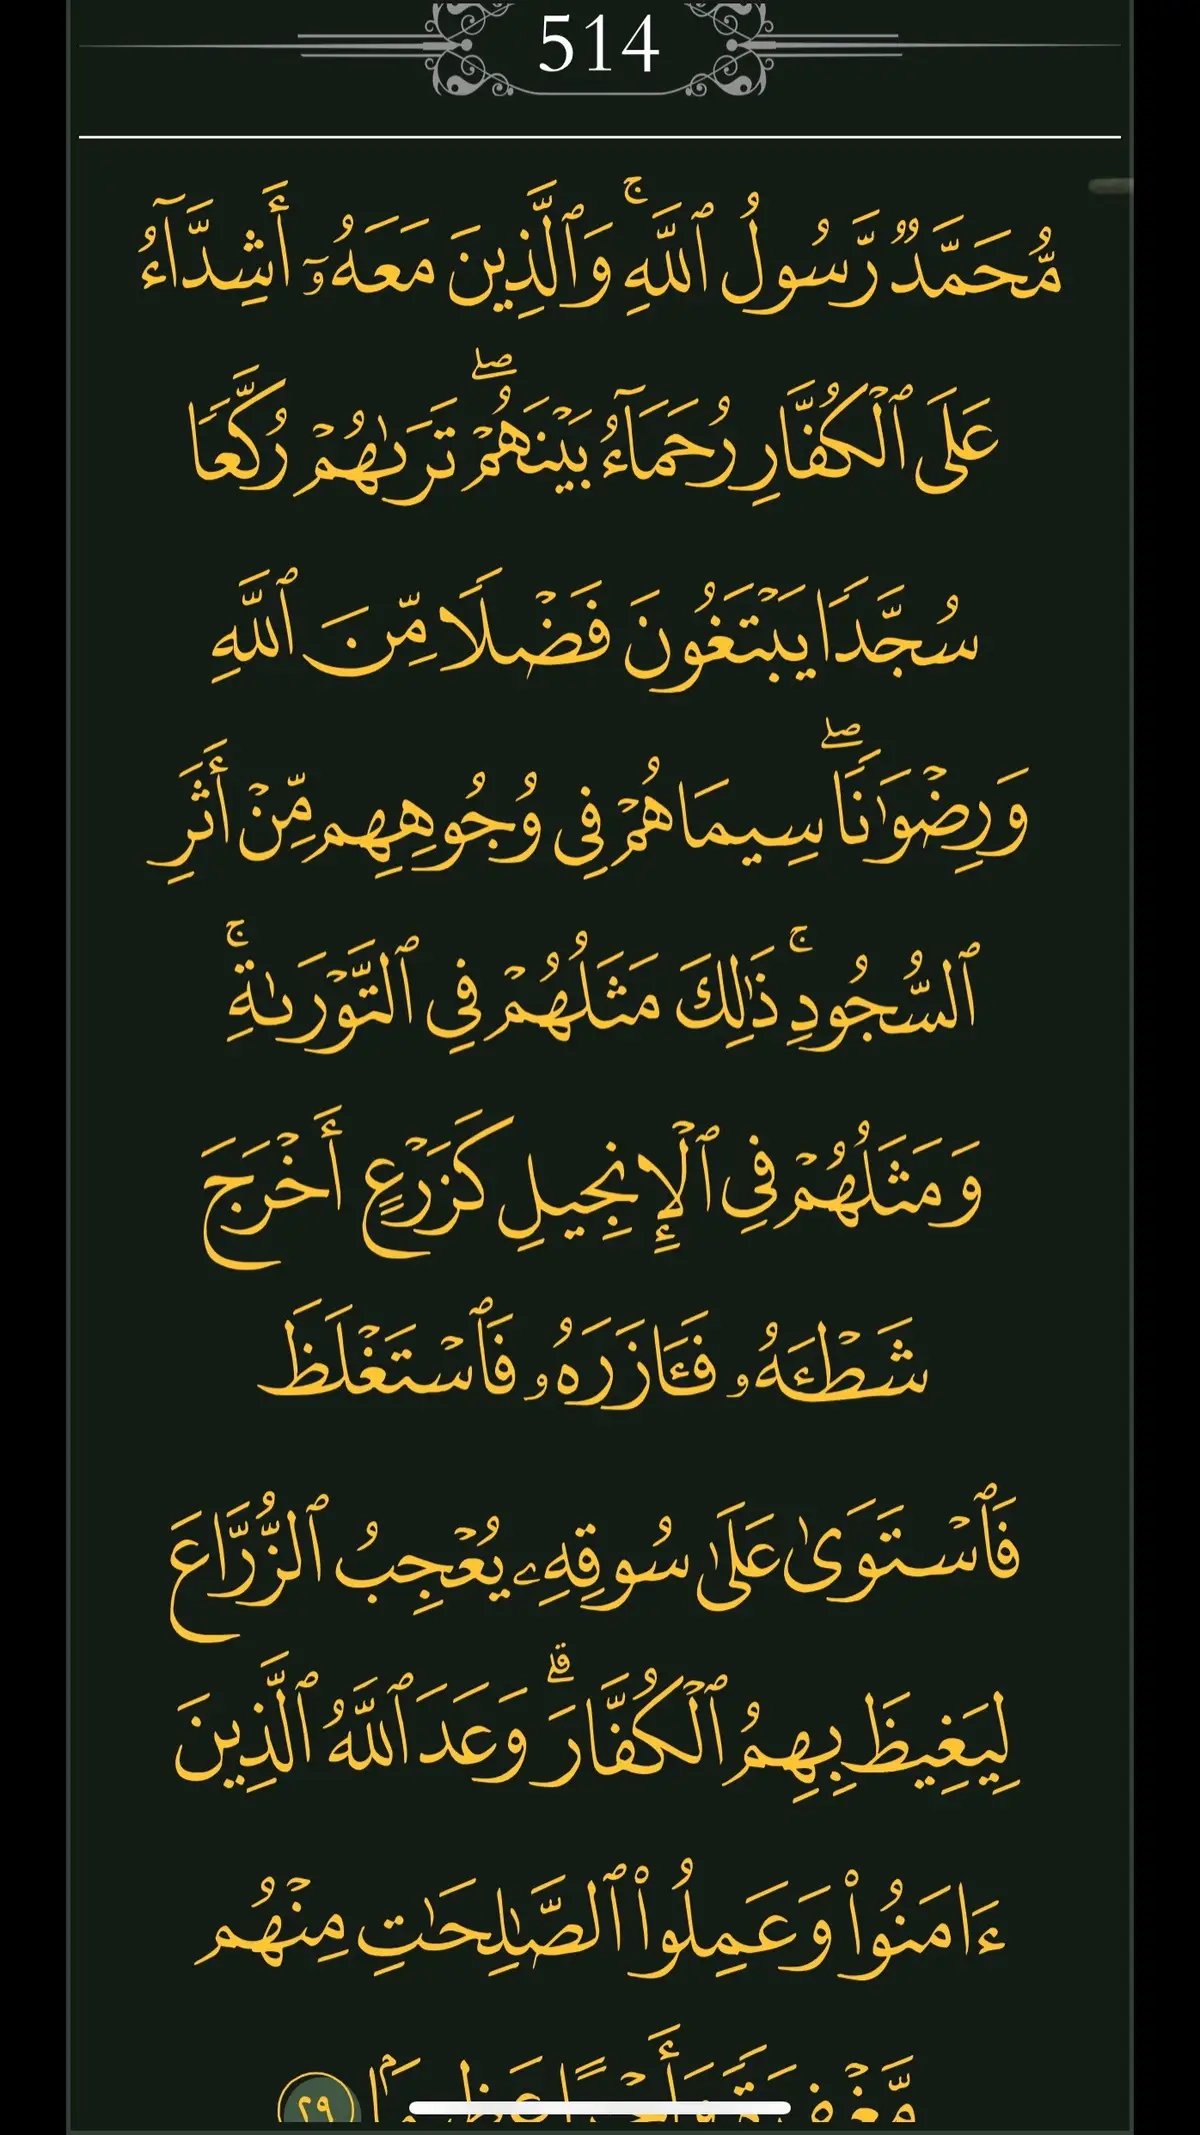 514
مُّحَمَّدٌ رَّسُولُ ٱللَّهِۚ وَٱلَّذِينَ مَعَهُۥٓ أَشِدَّآءُ
عَلَى ٱلْكُفَّارِ رُحَمَآءُ بَيْنَهُمْۖ تَرَىٰهُمْ رُكَّعًا
سُجَّدًا يَبْتَغُونَ فَضْلًا مِّنَ ٱللَّهِ
وَرِضْوَٰنًاۖ سِيمَاهُمْ فِى وُجُوهِهِم مِّنْ أَثَرِ
ٱلسُّجُودِۚ ذَٰلِكَ مَثَلُهُمْ فِى ٱلتَّوْرَىٰةِۚ
وَمَثَلُهُمْ فِى ٱلْإِنجِيلِ كَزَرْعٍ أَخْرَجَ
شَطْـَٔهُۥ فَـَٔازَرَهُۥ فَٱسْتَغْلَظَ
فَٱسْتَوَىٰ عَلَىٰ سُوقِهِۦ يُعْجِبُ ٱلزُّرَّاعَ
لِيَغِيظَ بِهِمُ ٱلْكُفَّارَۗ وَعَدَ ٱللَّهُ ٱلَّذِينَ
ءَامَنُوا۟ وَعَمِلُوا۟ ٱلصَّٰلِحَٰتِ مِنْهُم
مَّغْفِرَةً وَأَجْرًا عَظِيمًۢا ٢٩